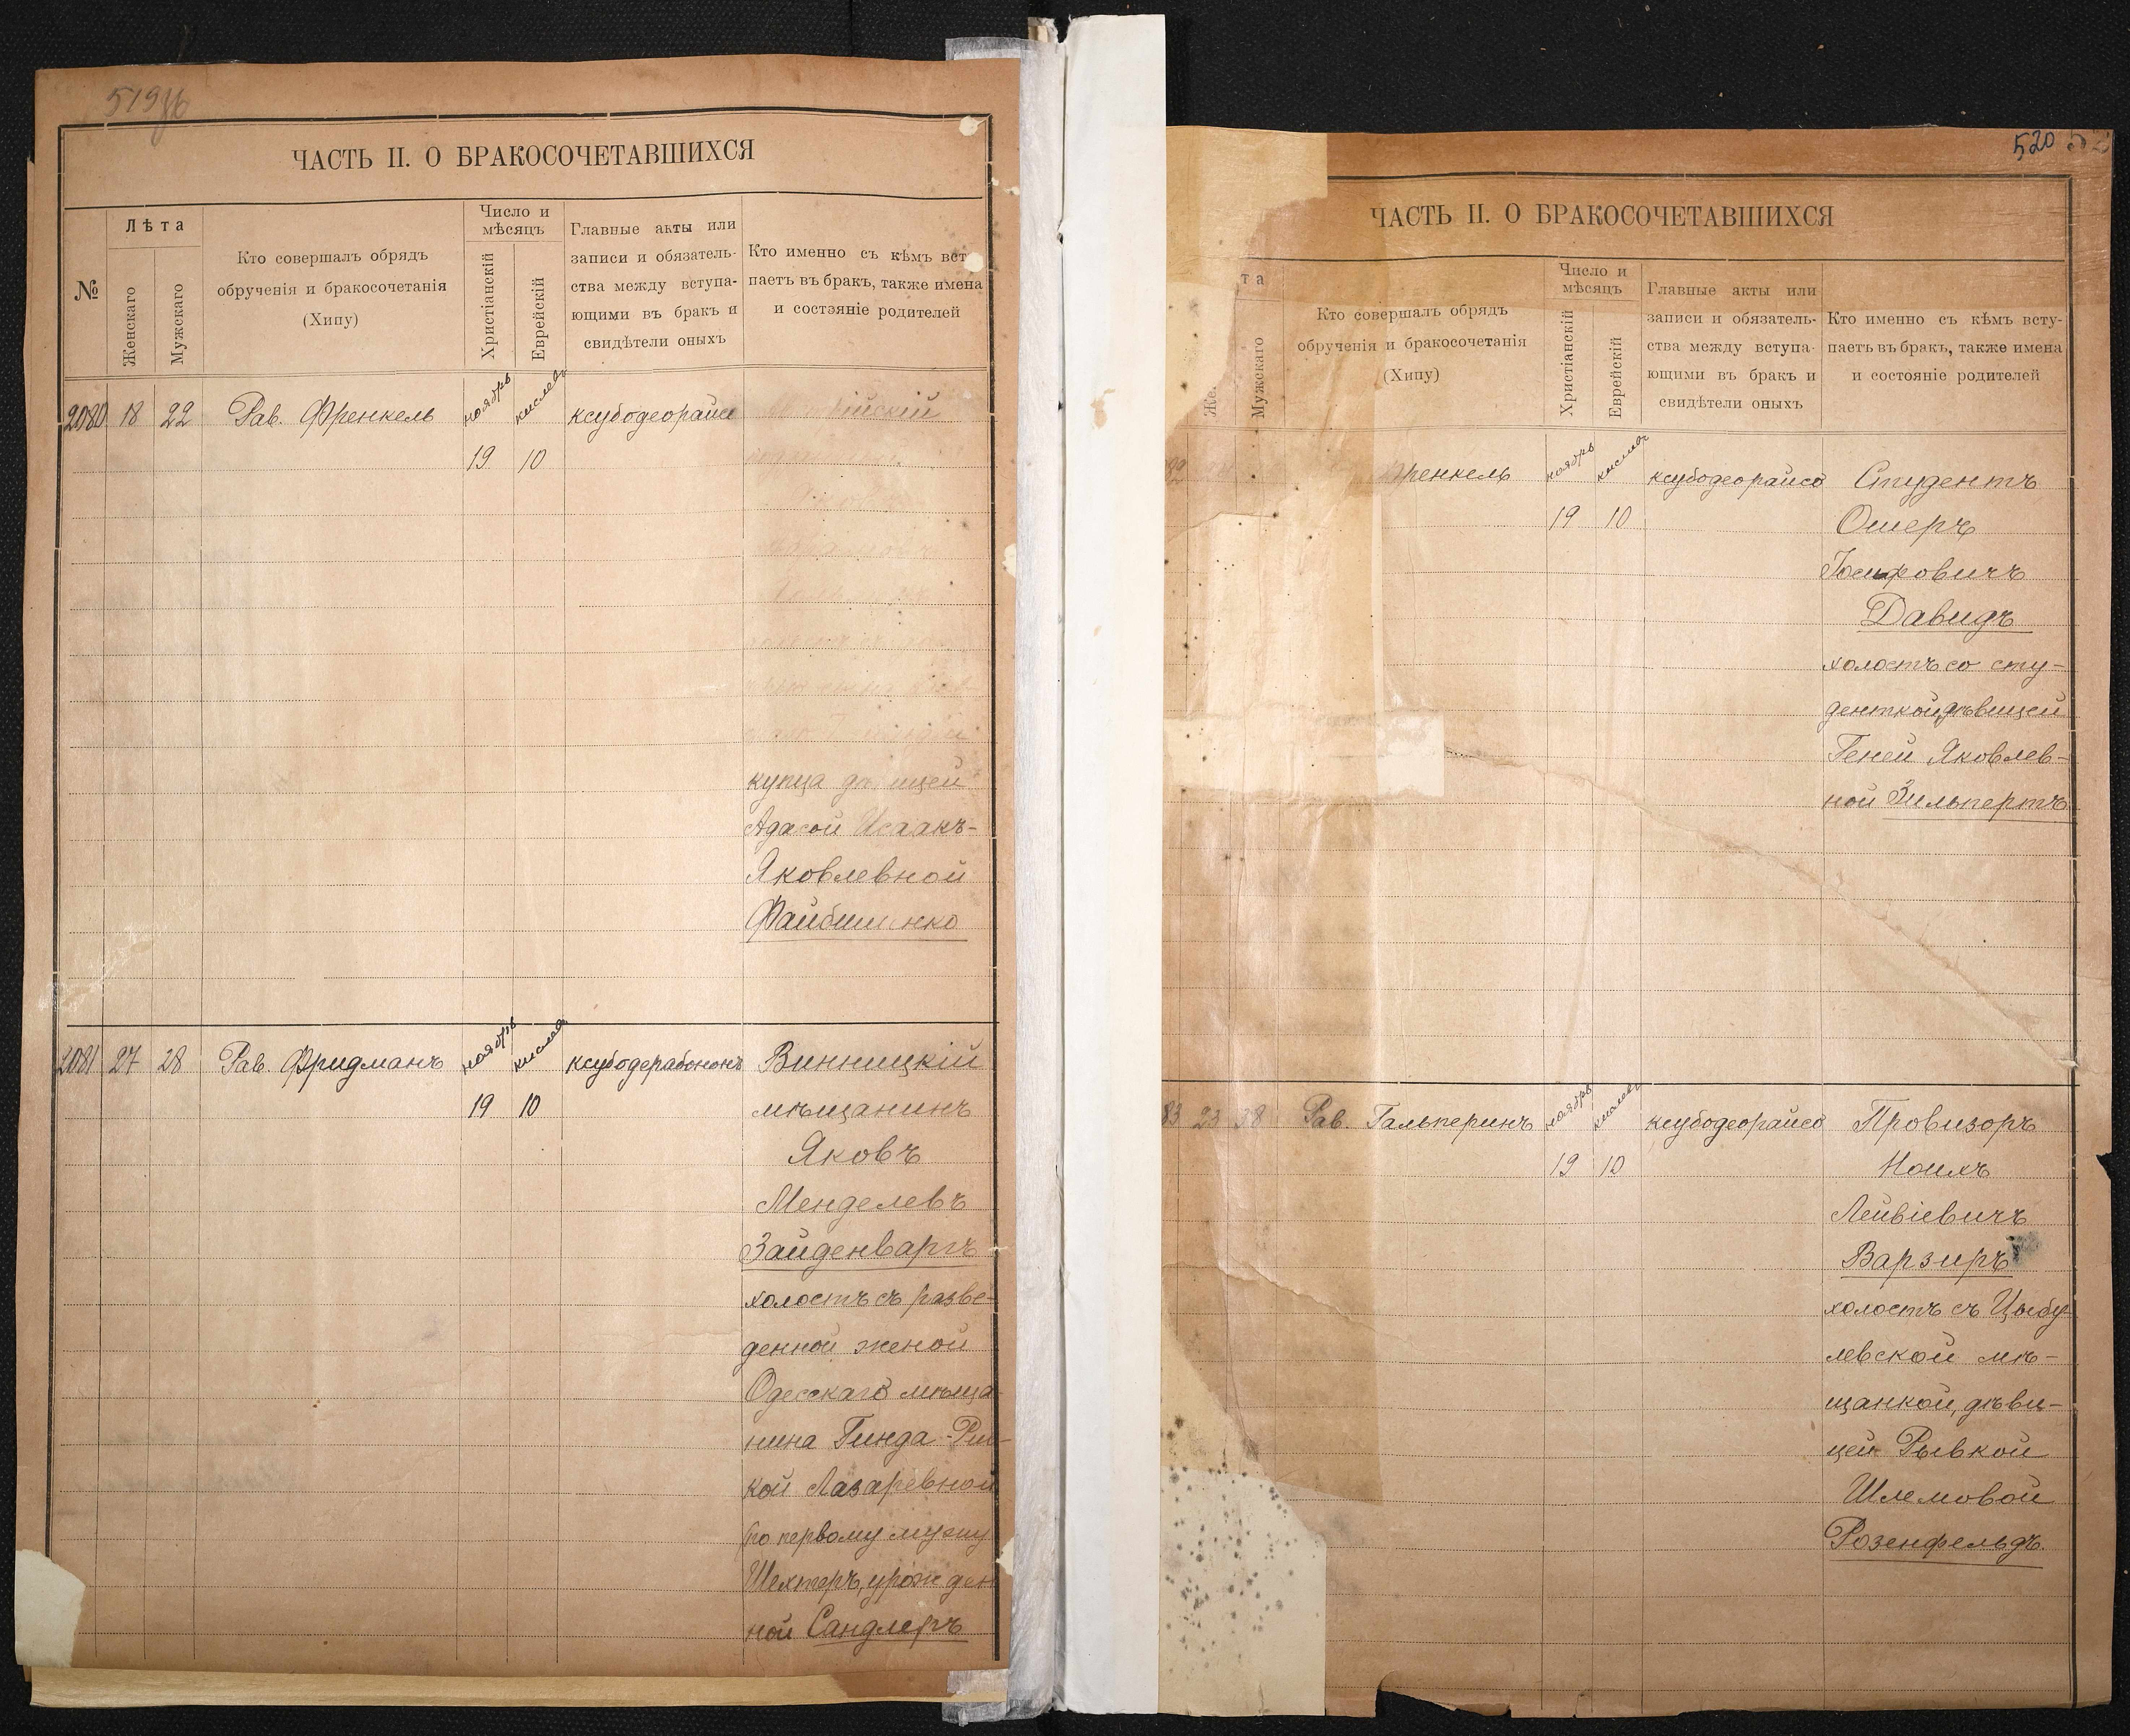 519
ЧАСТЬ II. О БРАКОСОЧЕТАВШИХСЯ
№
Лѣта
Женскаго
Мужскаго
Кто совершалъ обрядъ
обрученія и бракосочетанія
(Хипу)
Число и
мѣсяцъ
Христіанскій
Еврейскій
Главные акты или
записи и обязатель-
ства между вступа-
ющими въ бракъ и
свидѣтели оныхъ
Кто именно съ кѣмъ вст
паетъ въ бракъ, также имена
и состояніе родителей
2080 18 22 Рав. Френкель ноябрь кислевъ ксубодеорайсо
19 10
купца
Адасой Исаакъ-
Яковлевной
2081 27 28 Рав. Фридманъ ноябрь кислевъ ксубодерабононъ Винницкій
19 10 мѣщанинъ
Яковъ
Менделевъ
Зайденваргъ
холостъ съ разве-
денной женой
Одесскаго мѣща-
нина Гинда-Рив-
кой Лазаревной
(по первому мужу
Шехтеръ, урожден
ной Сандлеръ
520
ЧАСТЬ II. О БРАКОСОЧЕТАВШИХСЯ
та
Же
Мужскаго
Кто совершалъ обрядъ
обрученія и бракосочетанія
(Хипу)
Число и
мѣсяцъ
Христіанскій
Еврейскій
Главные акты или
записи и обязатель-
ства между вступа-
ющими въ бракъ и
свидѣтели оныхъ
Кто именно съ кѣмъ всту-
паетъ въ бракъ, также имена
и состояніе родителей
Френкель ноябрь кислевъ ксубодеорайсо Студентъ
19 10 Ошеръ
Іосифовичъ
Давидъ
холостъ со сту-
денткой, дѣвицей
Геней Яковлев-
ной Зильпертъ
83 23 38 Рав. Гальперинъ ноябрь кислевъ ксубодеорайсо Провизоръ
19 10 Ноихъ
Лейвіевичъ
Варзиръ
холостъ съ Цыбу-
левской мѣ-
щанкой, дѣви-
цей Рывкой
Шлемовой
Розенфельдъ.